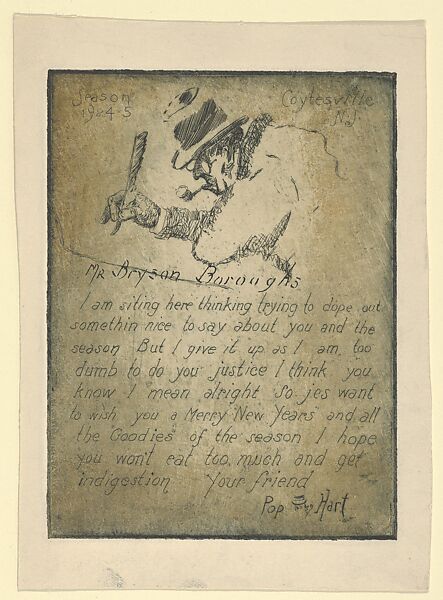 Season
1924-5
Coytesville
N.J
Mr Bryson Boroughs
I am siting here thinking trying to dope out
somethin nice to say about you and the
season But I give it up as I am too
dumb to do you justice I think you
know I mean alright So jes want
to wish you a Merry New Years and all
the Goodies of the season I hope
you won't eat too much and get
indigestion Your friend
Pop Hart